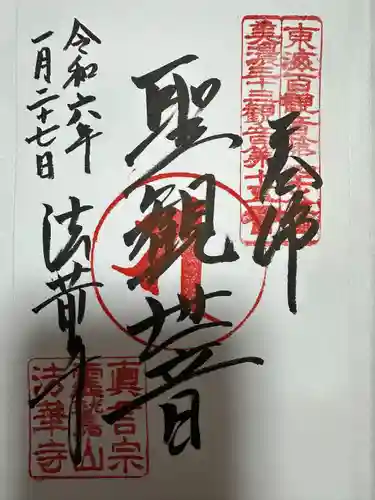 奉拝
聖観世音
法華寺
令和六年
一月二十七日
東海百観音
美濃三十三観音第十
真言宗
山
法華寺